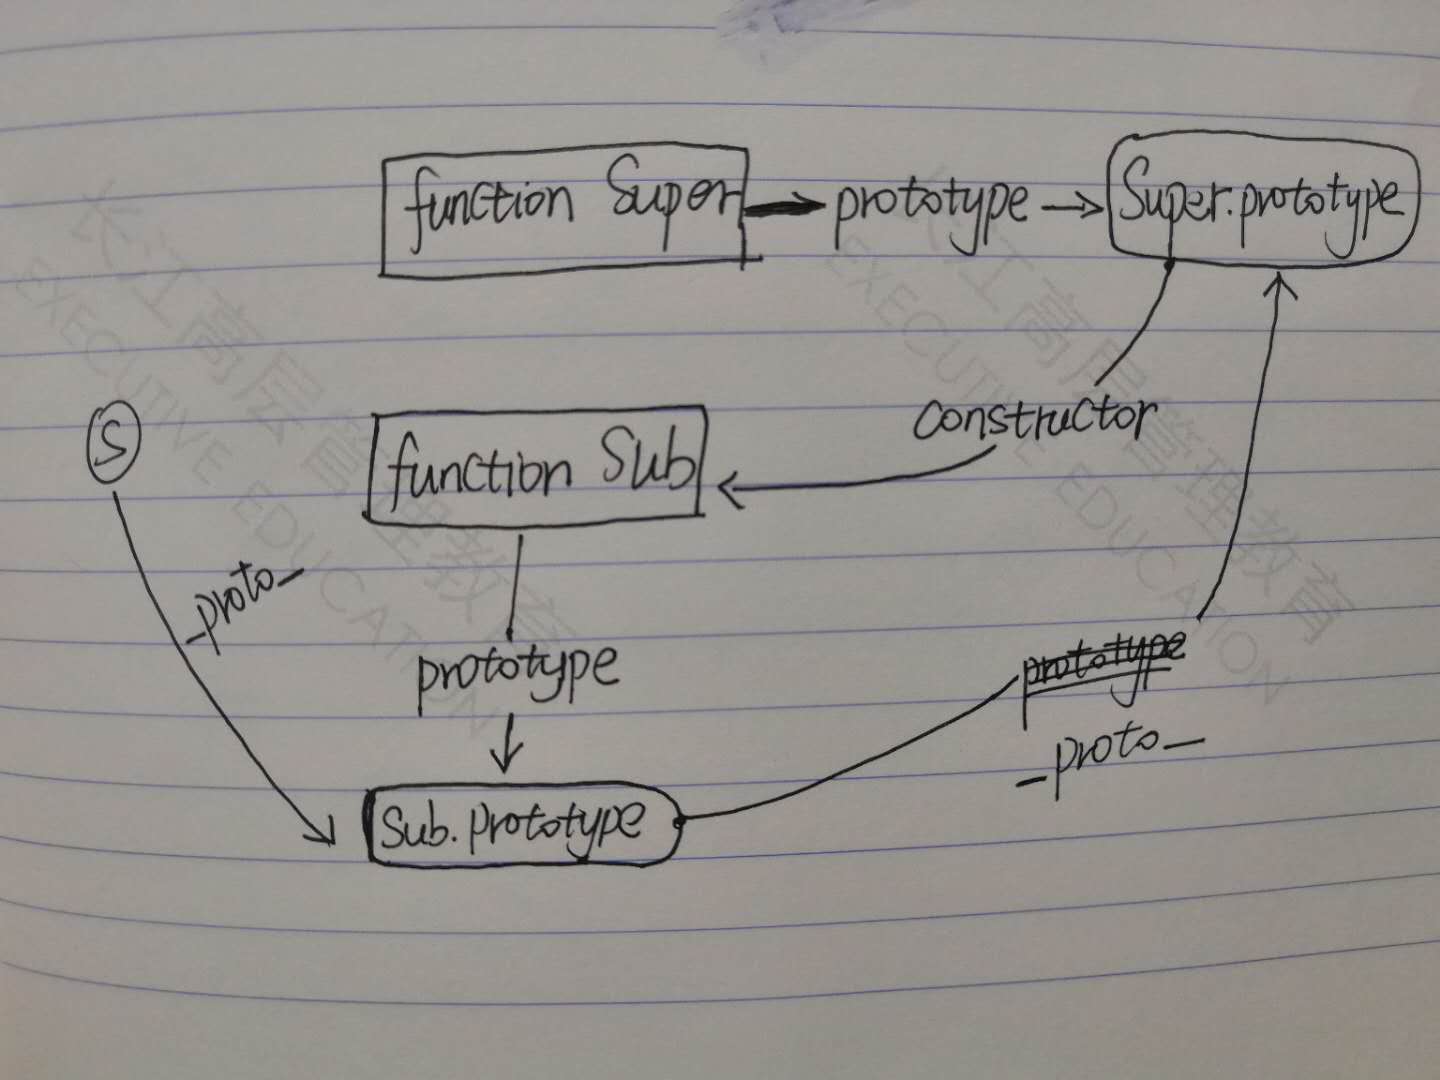 function Super prototype Super.prototype
constructor
S
function Sub
_proto_
prototype
prototype
_proto_
Sub.prototype
长江高层管理教育
EXECUTIVE EDUCATION
长江高层管理教育
EXECUTIVE EDUCATION